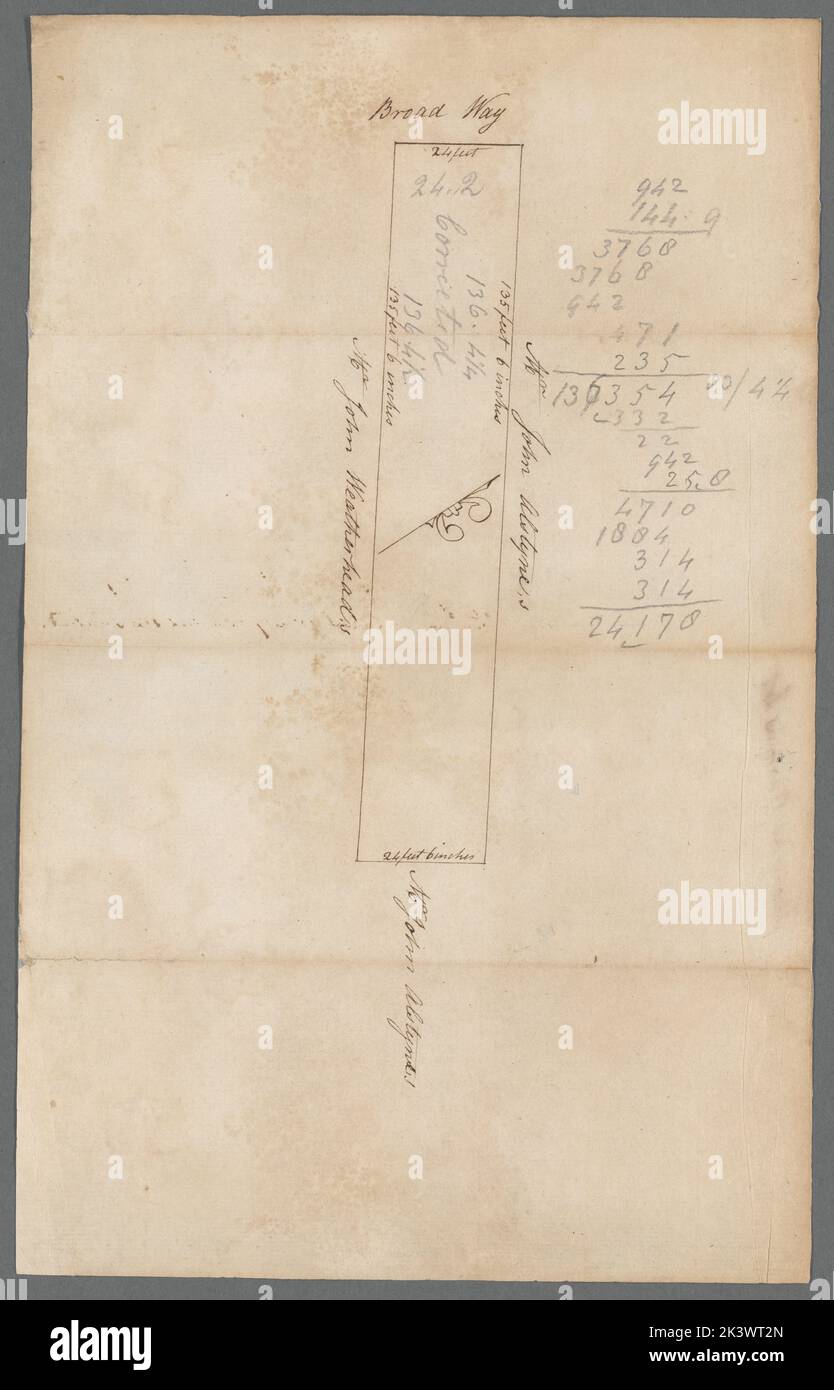 Broad Way
24 feet
24..2
Corrected
136. 4¼
136 4½
135 feet 6 inches
135 feet 6 inches
Mr John Weatherhead,s
Mr John Alstyne,s
24 feet 6 inches
Mr John Alstyne,s
942
144. 9
3768
3768
942
471
235
136354
/ 4¼
332
22
942
25.8
4710
1884
314
314
24178
alamy
alamy
alamy
alamy
alamy
a
a
a
a
a
a
alamy
Image ID: 2K3WT2N
www.alamy.com